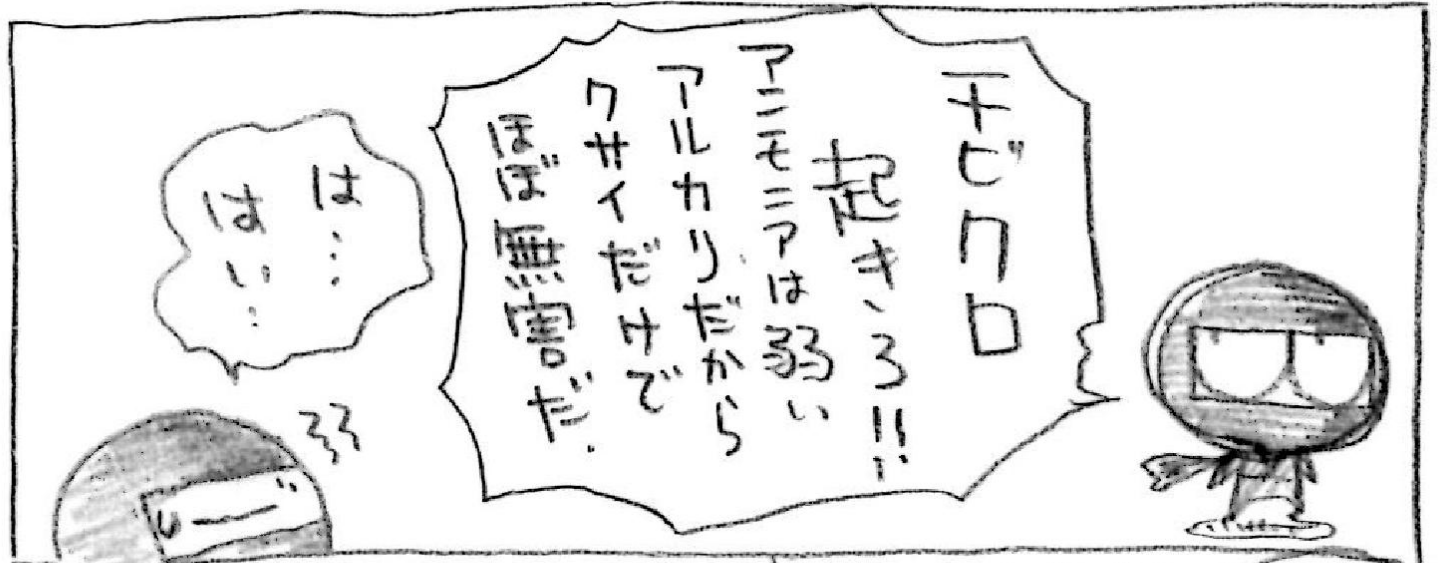 チビクロ
起きろ!!
アニモニアは弱い
アルカリだから
クサイだけで
ほぼ無害だ.
は…
はい…